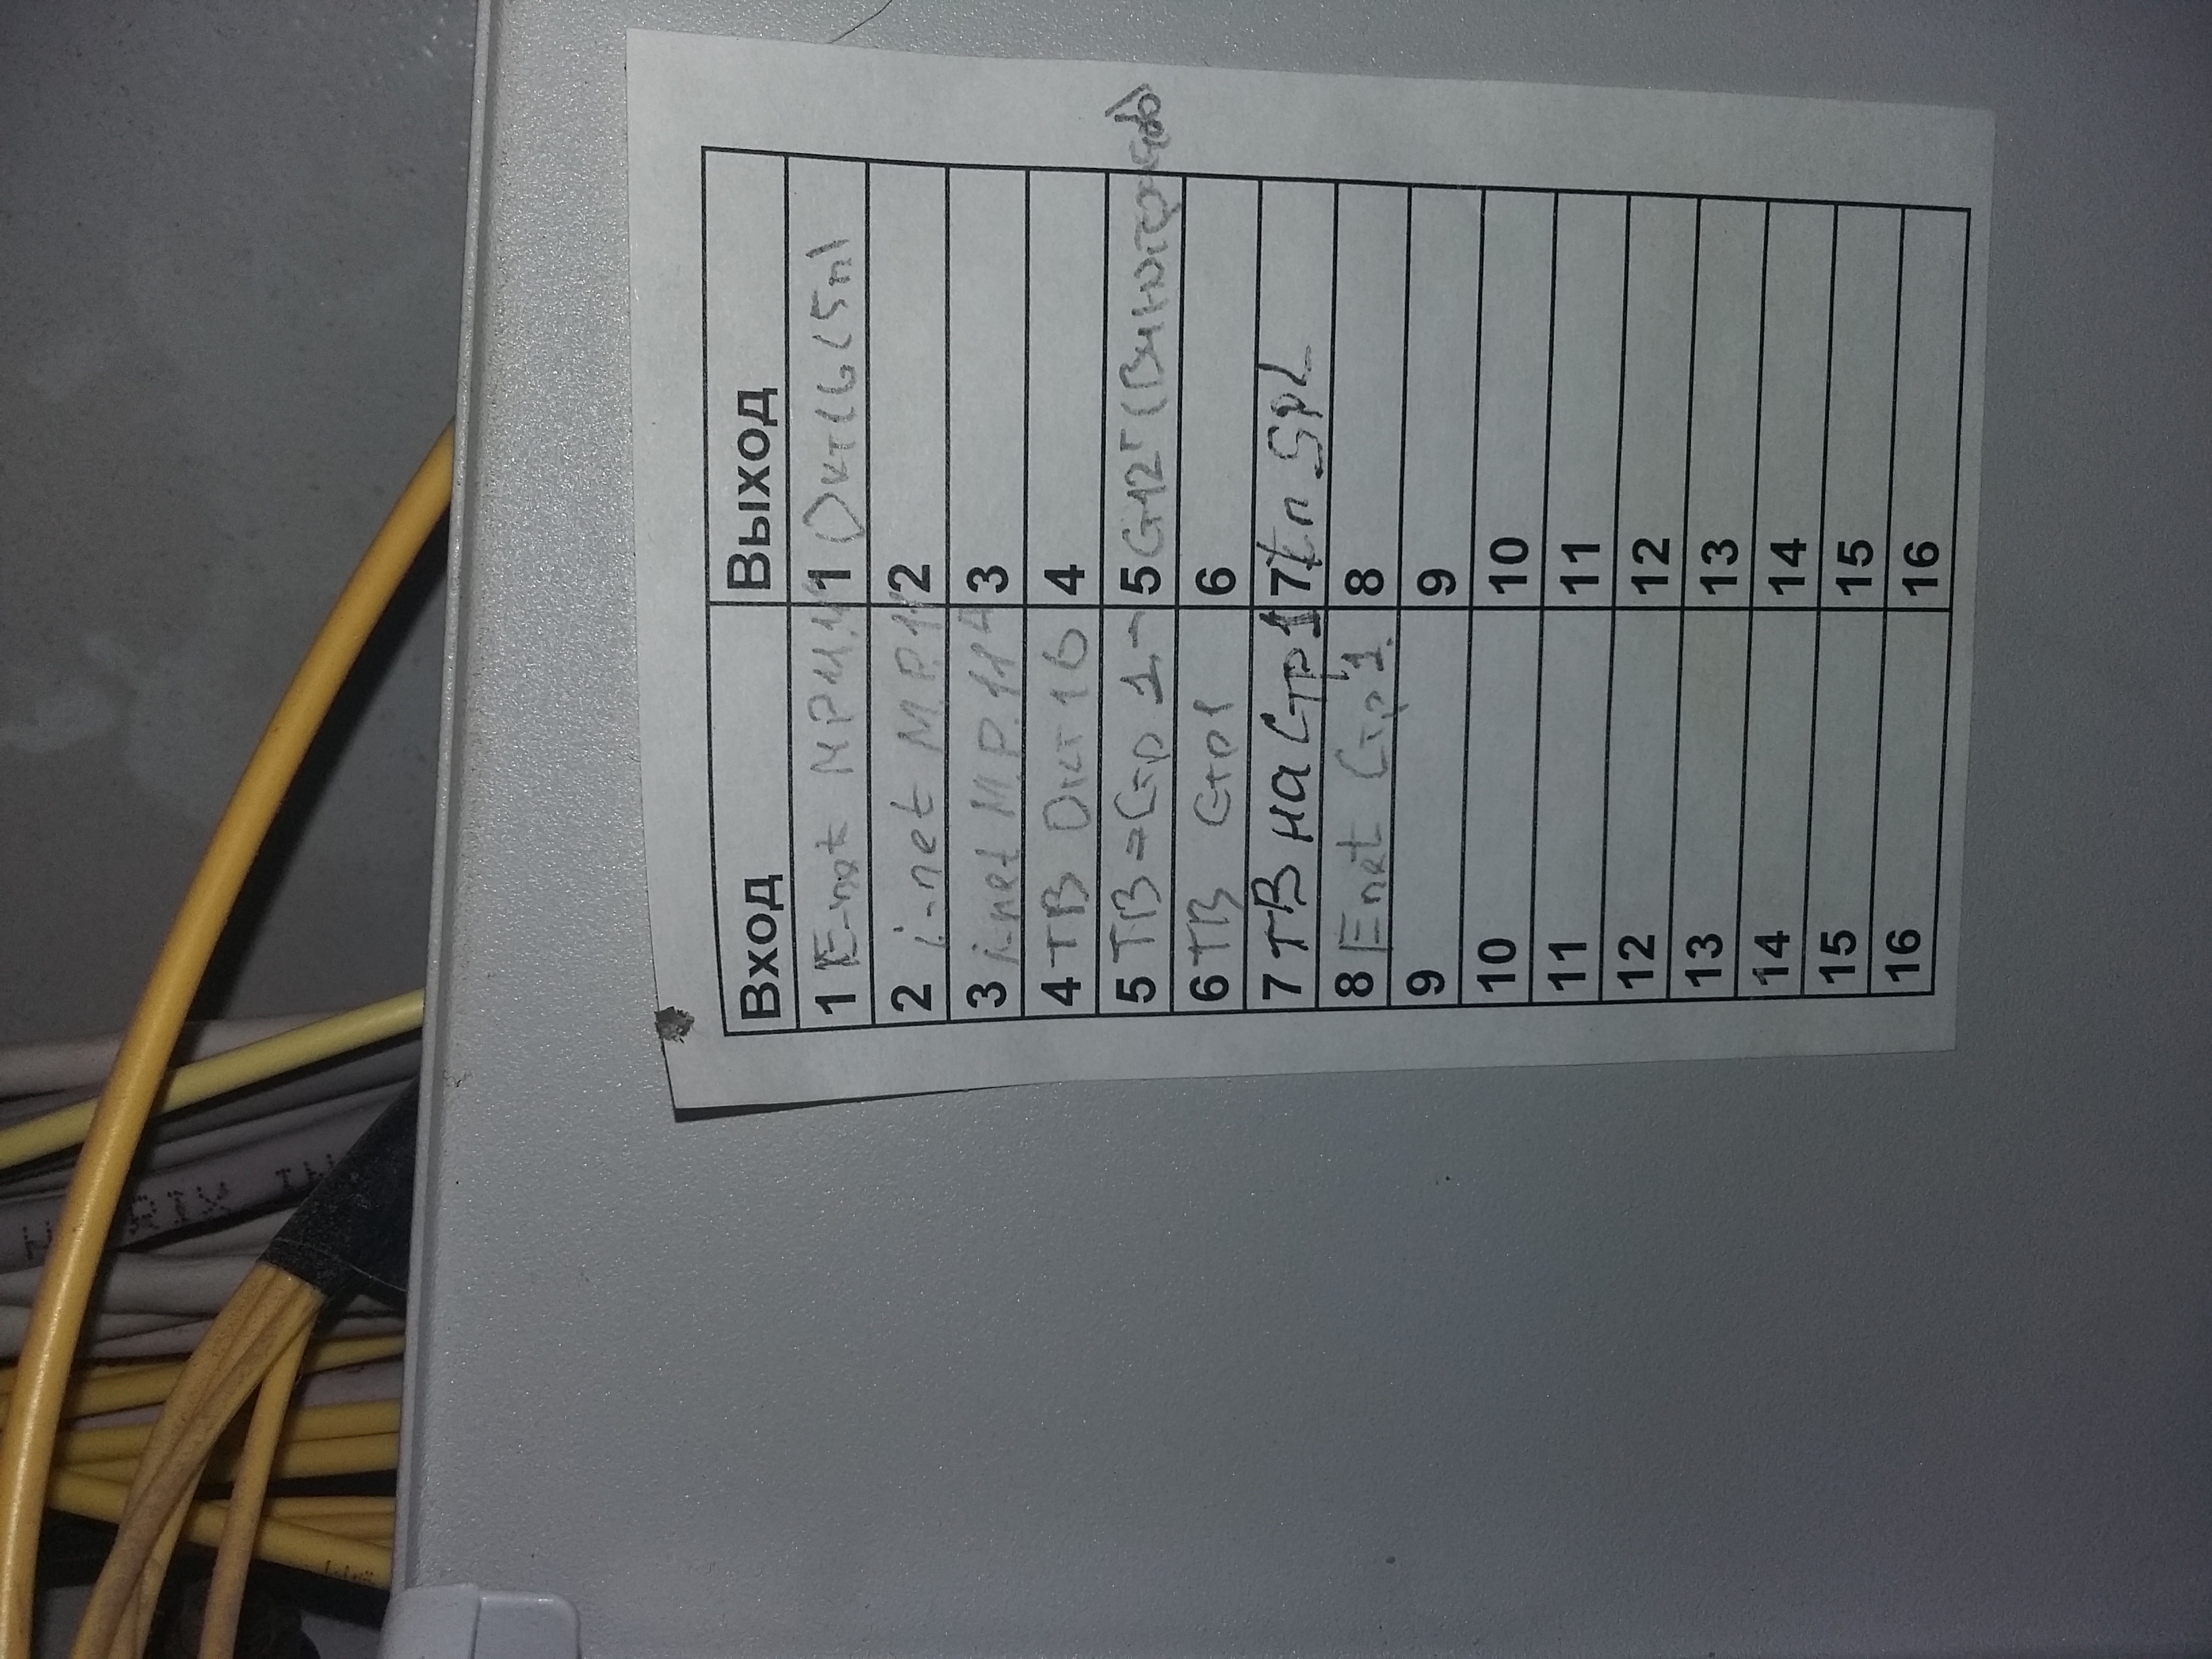 Вход Выход
1 E-net МР11. 1 Окт16 (5п)
2 i-net М.Р.11 2
3 i-net М.Р.114 3
4 ТВ Окт 16 4
5 ТВ Стр 1 5 Ст12Г (Виноградов)
6 ТВ Стр1 6
7 ТВ на Стр1 7 in SpL
8 E-net Стр1. 8
9 9
10 10
11 11
12 12
13 13
14 14
15 15
16 16